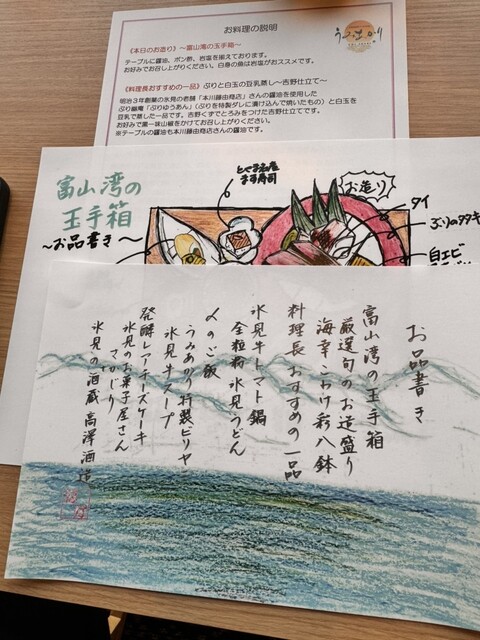 お料理の説明
うみあかり
《本日のお造り》～富山湾の玉手箱～
テーブルに醤油、ポン酢、岩塩を揃えております。
お好みでお召し上がりください。白身の魚は岩塩がおススメです。
《料理長おすすめの一品》ぶりと白玉の豆乳蒸し～吉野仕立て～
明治3年創業の氷見の老舗「本川藤由商店」さんの醤油を使用した
ぶり幽庵「ぶりゆうあん」（ぶりを特製ダレに漬け込んで焼いたもの）と白玉を
豆乳で蒸した一品です。吉野くずでとろみをつけた吉野仕立てです。
お好みで黒一味山椒をかけてお召し上がりください。
※テーブルの醤油も本川藤由商店さんの醤油です。
富山湾の
玉手箱
～お品書き～
とやま名産
ます寿司
お造り
タイ
ぶりのタタキ
白エビ
お品書き
富山湾の玉手箱
厳選旬のお造り盛り
海幸こわけ彩八鉢
料理長おすすめの一品
氷見牛トマト鍋
全粒粉氷見うどん
〆のご飯
うみあかり特製ビリヤニ
氷見牛スープ
発酵レアチーズケーキ
氷見のお菓子屋さん
さがじり
氷見の酒蔵 高澤酒造